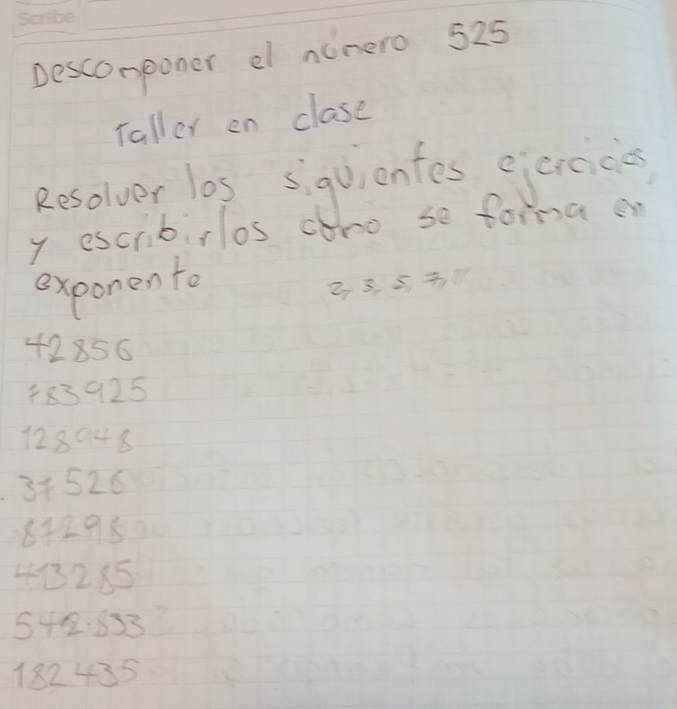 Scribe
Descomponer el número 525
Taller en clase
Resolver los siguientes ejercicios,
y escribirlos como se forma en
exponente 2, 3, 5, 7, 11
42856
783925
128948
37526
87298
413285
542.833
182435